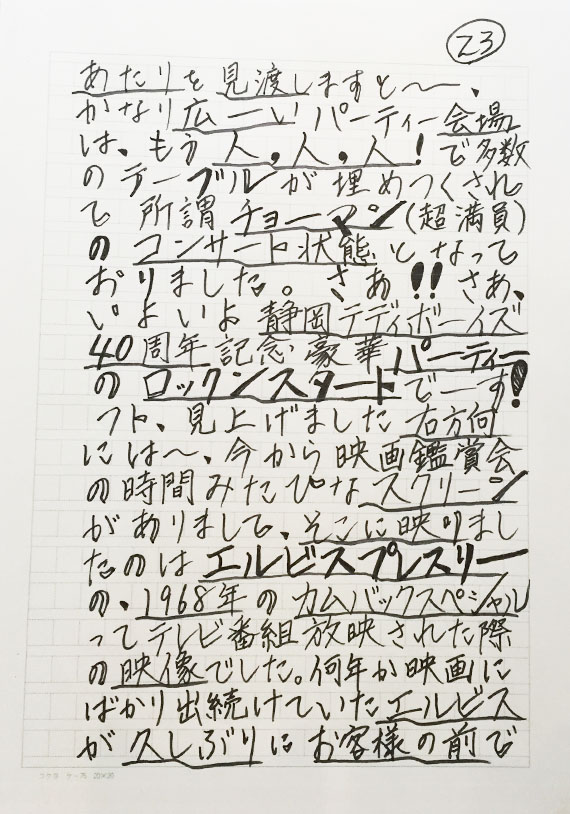 23
あたりを見渡しますと〜〜、
かなり広ーいパーティー会場
は、もう人,人,人!で多数
のテーブルが埋めつくされ
て所謂チョーマン(超満員)
のコンサート状態となって
おりました。さあ!!さあ、
いよいよ静岡テディボーイズ
40周年記念豪華パーティー
のロックンスタートでーす!
フト、見上げました右方向
には〜、今から映画鑑賞会
の時間みたいなスクリーン
がありまして、そこに映りまし
たのはエルビスプレスリー
の、1968年のカムバックスペシャル
ってテレビ番組放映された際
の映像でした。何年か映画に
ばかり出続けていたエルビス
が久しぶりにお客様の前で
コクヨ ケ-75 20×20